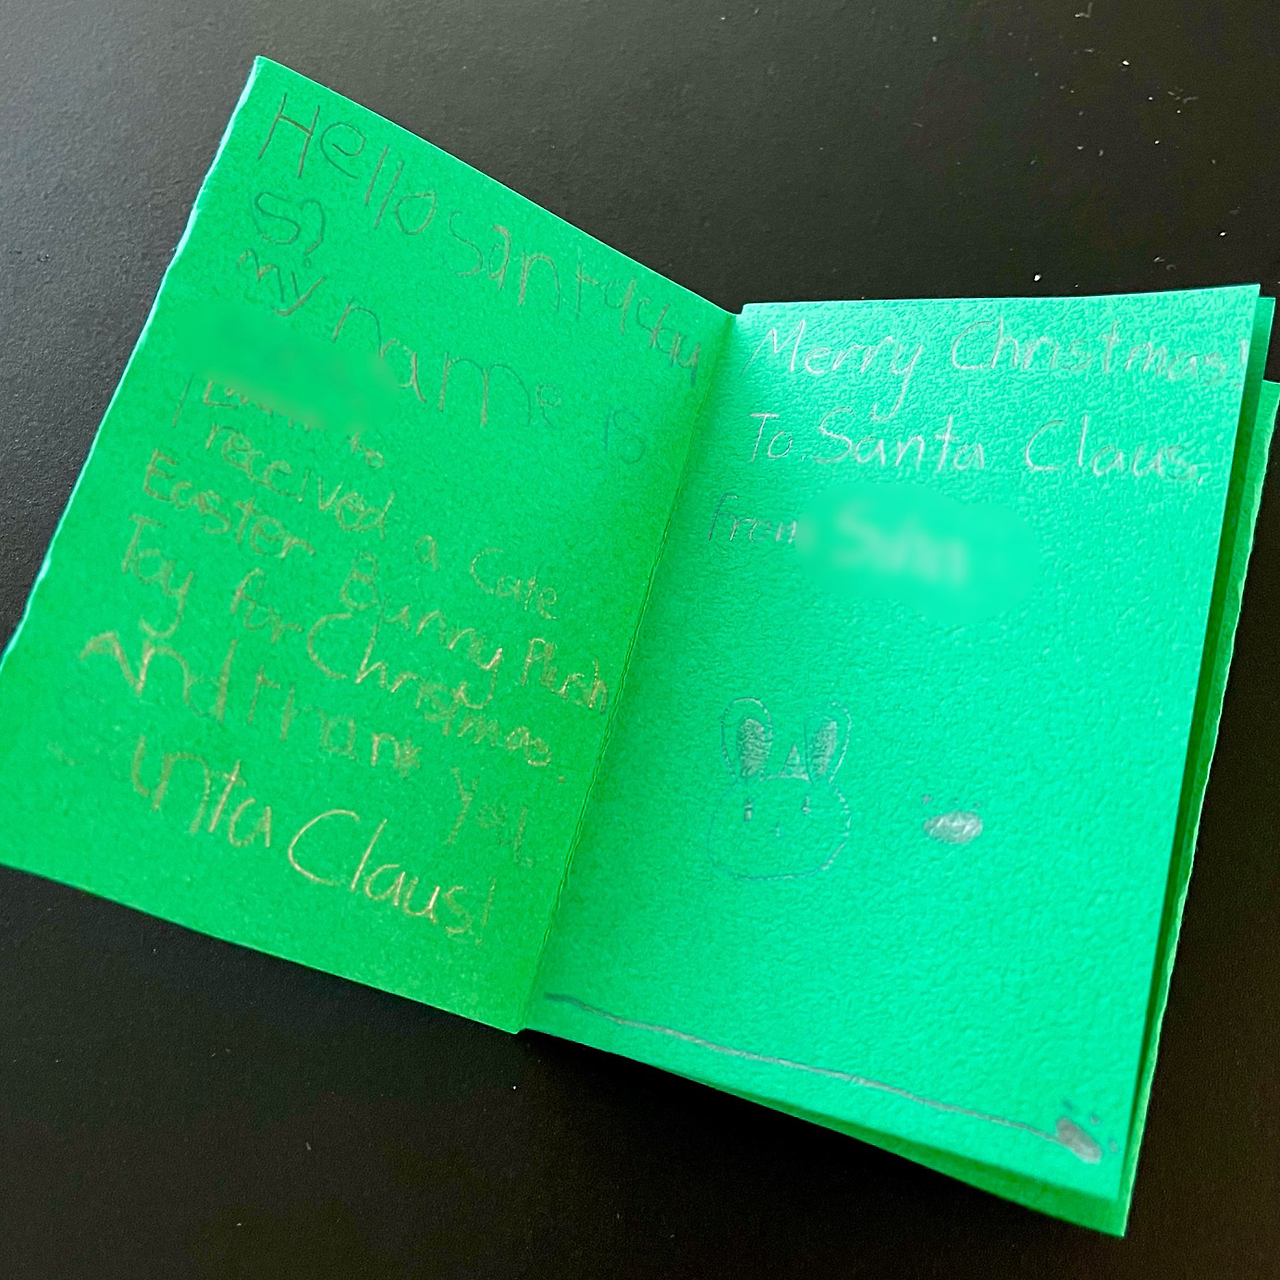 Hello santacku
S?
my name is
I to
received a Cute
Easter Bunny Plush
Toy for Christmas.
And thank you
Claus!
Merry Christmas!
To Santa Claus.
from